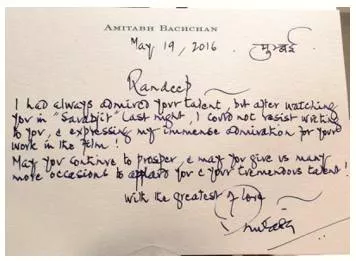 AMITABH BACHCHAN
May 19, 2016 मुम्बई
Randeep
I had always admired your talent, but after watching
you in "Sarabjit" last night, I could not resist writing
to you, & expressing my immense admiration for your
work in the film!
May you continue to prosper, & may you give us many
more occasions to applaud you & your tremendous talent!
With the greatest of love
Amitabh